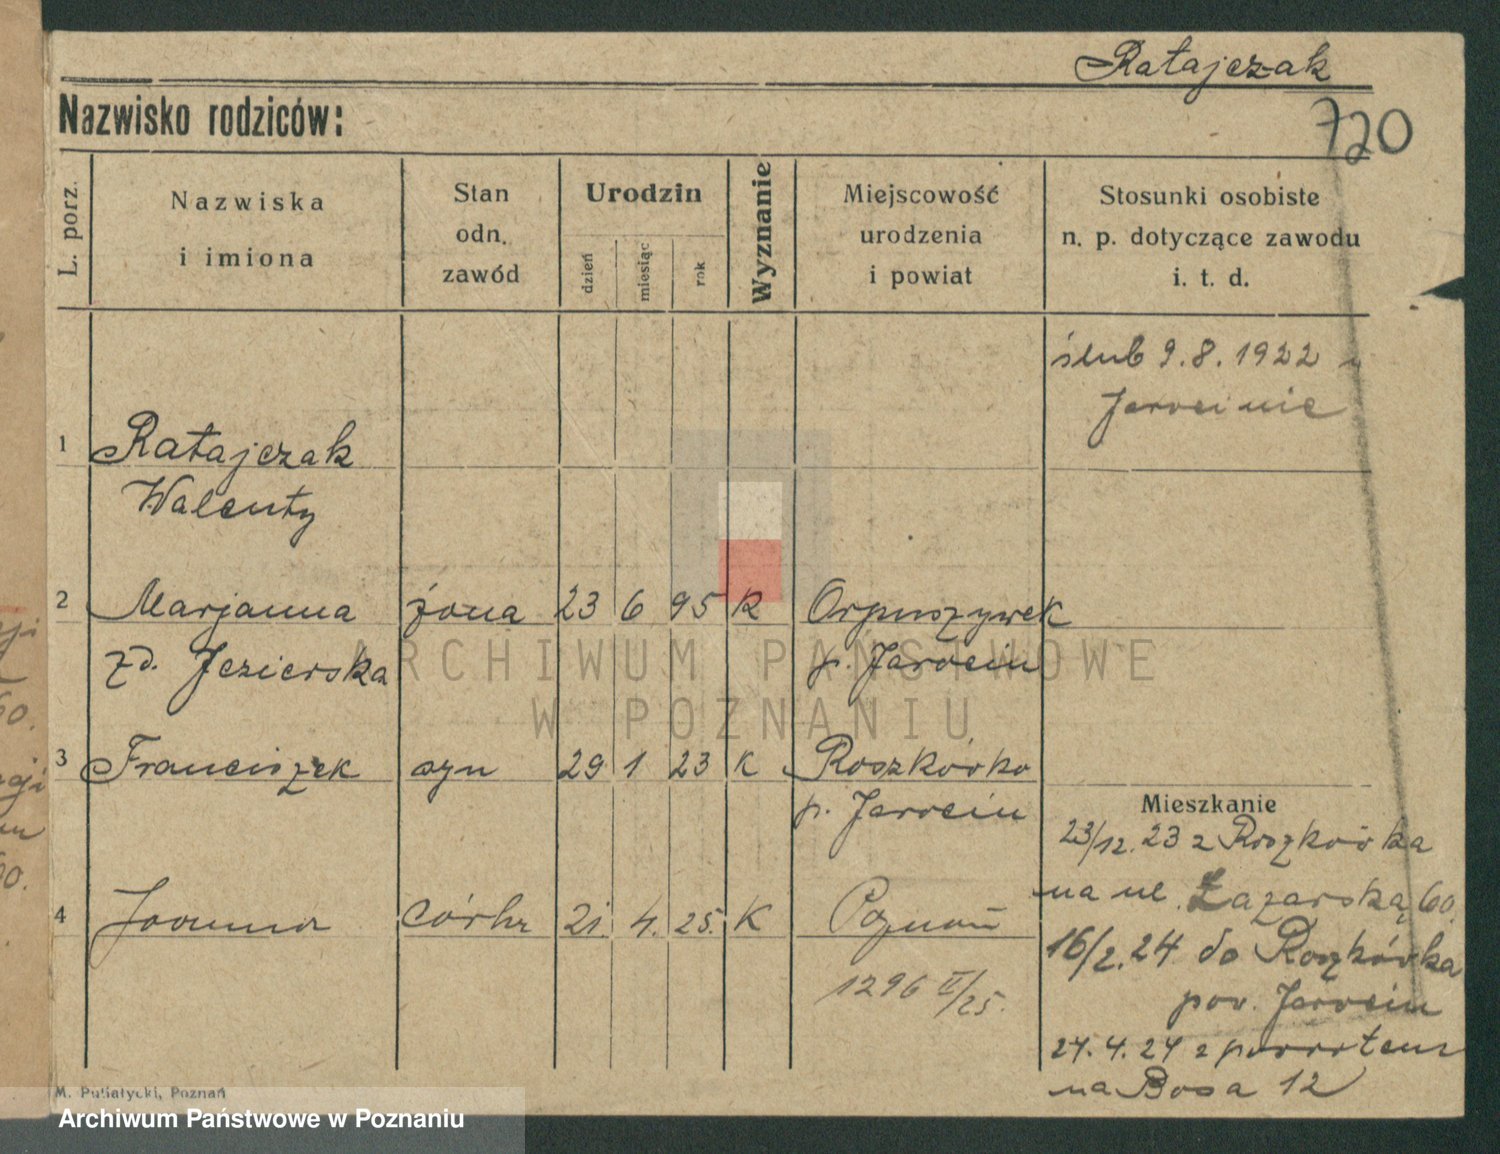 Ratajczak
720
Nazwisko rodziców:
L. porz.
Nazwiska
i imiona
Stan
odn.
zawód
Urodzin
dzień
miesiąc
rok
Wyznanie
Miejscowość
urodzenia
i powiat
Stosunki osobiste
n. p. dotyczące zawodu
i. t. d.
ślub 9.8.1922
Jarocinie
1 Ratajczak
Walenty
2 Marjanna żona 23 6 95 K Orpuszywek
zd. Jezierska p. Jarocin
3 Franciszek syn 29 1 23 K Roszkówko
p. Jarocin
Mieszkanie
23/12.23 z Roszkówka
na ul. Łazarską 60.
4 Joanna córka 21. 4. 25. K Poznań
16/2.24 do Roszkówka
1296 II/25.
pow. Jarocin
24.4.24 z powrotem
na Bosa 12
M. Putiatycki, Poznań
ARCHIWUM PAŃSTWOWE
W POZNANIU
Archiwum Państwowe w Poznaniu